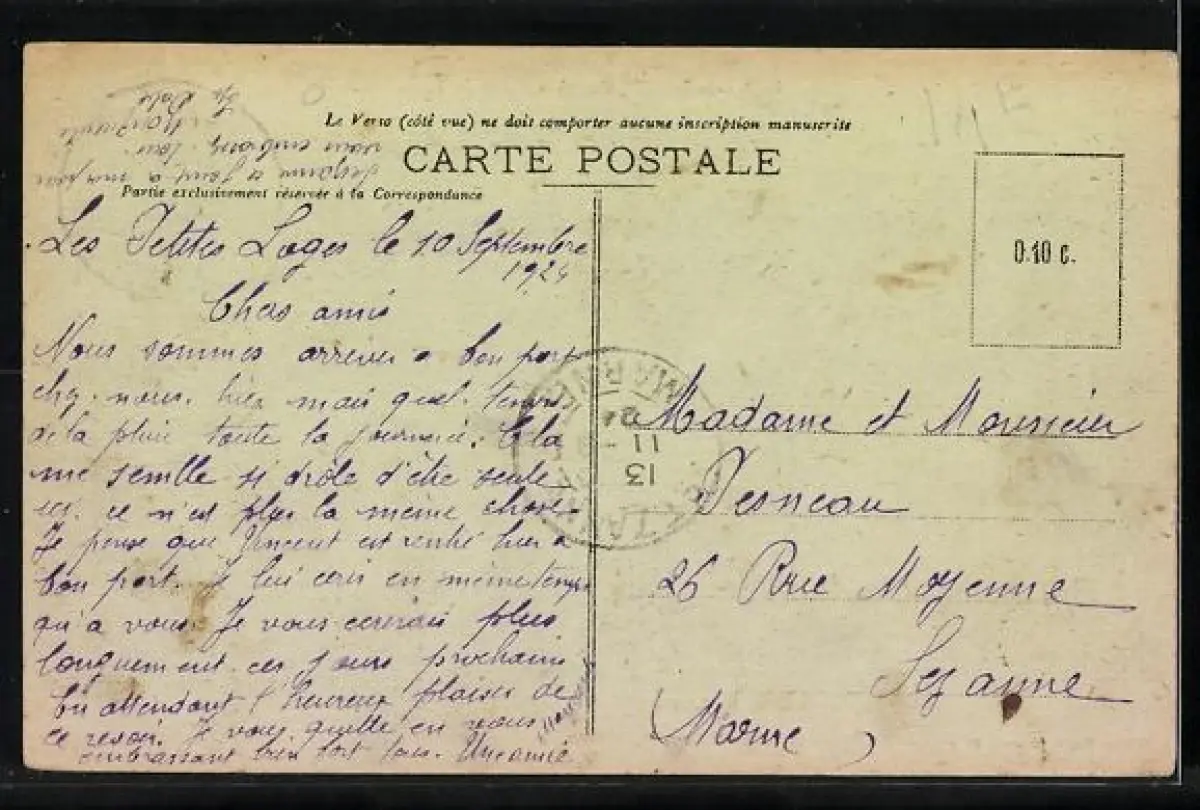 Le Verso (côté vue) ne doit comporter aucune inscription manuscrite
CARTE POSTALE
Partie exclusivement réservée à la Correspondance
Les Petites Loges le 10 Septembre
1924
Chers amis
Nous sommes arrivés a bon port
chez nous hier mais quel temps
de la pluie toute la journée. Cela
me semble si drôle d'être seule
ici. ce n'est plus la même chose.
Je pense que Vincent est rentré hier a
bon port. Je lui ecris en même temps
qu'a vous. Je vous ecrirai plus
longuement ces jours prochains
En attendant l'heureux plaisir de
ce revoir. Je vous quitte en vous
embrassant bien fort tous. Une amie
vous embrasse tous
0.10 c.
MARNE
11
13
Madame et Monsieur
26 Rue Moyenne
Sezanne
(Marne)